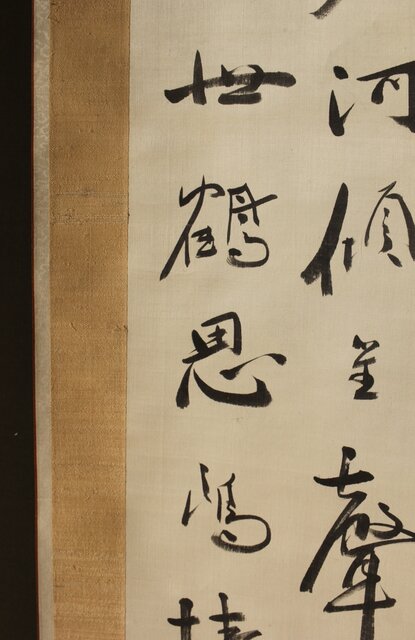 河傾聲
世鶴思鴻